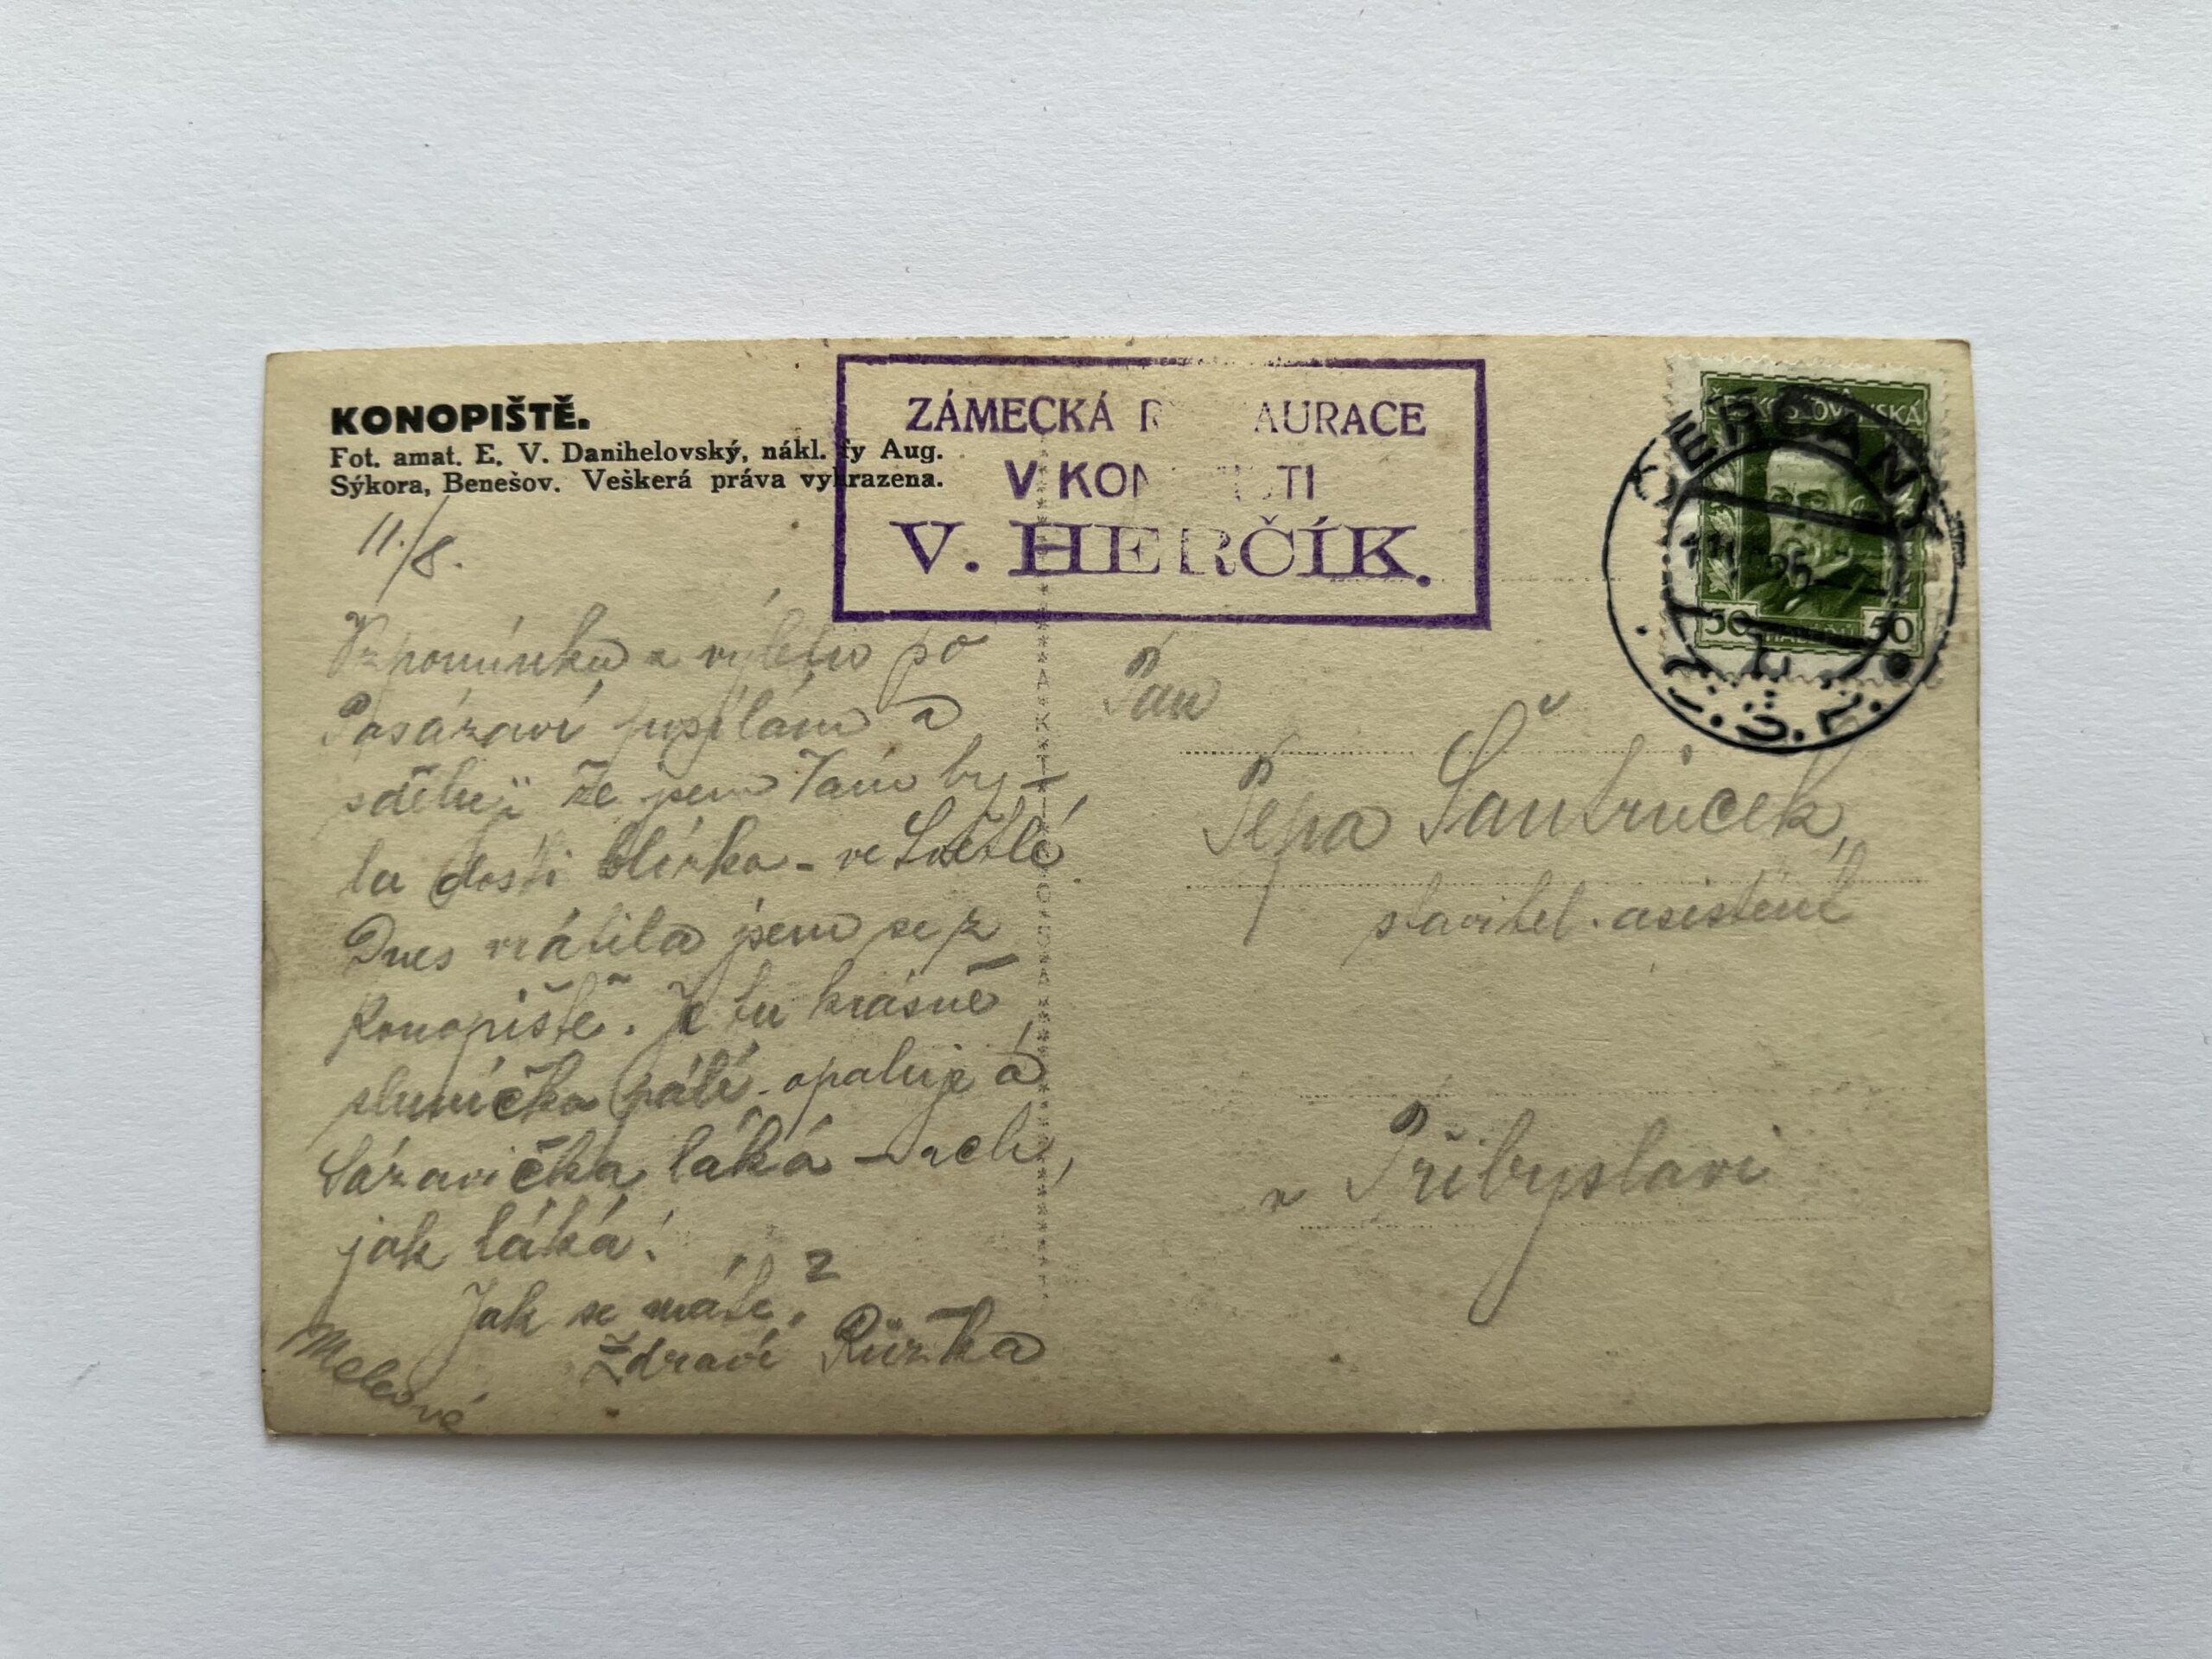 KONOPIŠTĚ.
Fot. amat. E. V. Danihelovský, nákl. fy Aug.
Sýkora, Benešov. Veškerá práva vyhrazena.
ZÁMECKÁ R AURACE
V KON TI
V. HERČÍK.
ČESKOSLOVENSKÁ
50 HALÉŘŮ 50
ČERČANY
11. 25
11./8.
Vzpomínku z výletu po
Posázaví posílám a
sděluji že jsem tam by-
la dosti blízko - ve Světlé.
Dnes vrátila jsem se z
Konopiště. Je tu krásně
sluníčko pálí - opaluje a
Sázavička láká - ach,
jak láká!
Jak se máte?
Zdraví Růžka
Pan
Pepa
stavitel. asistent
v Přibyslavi